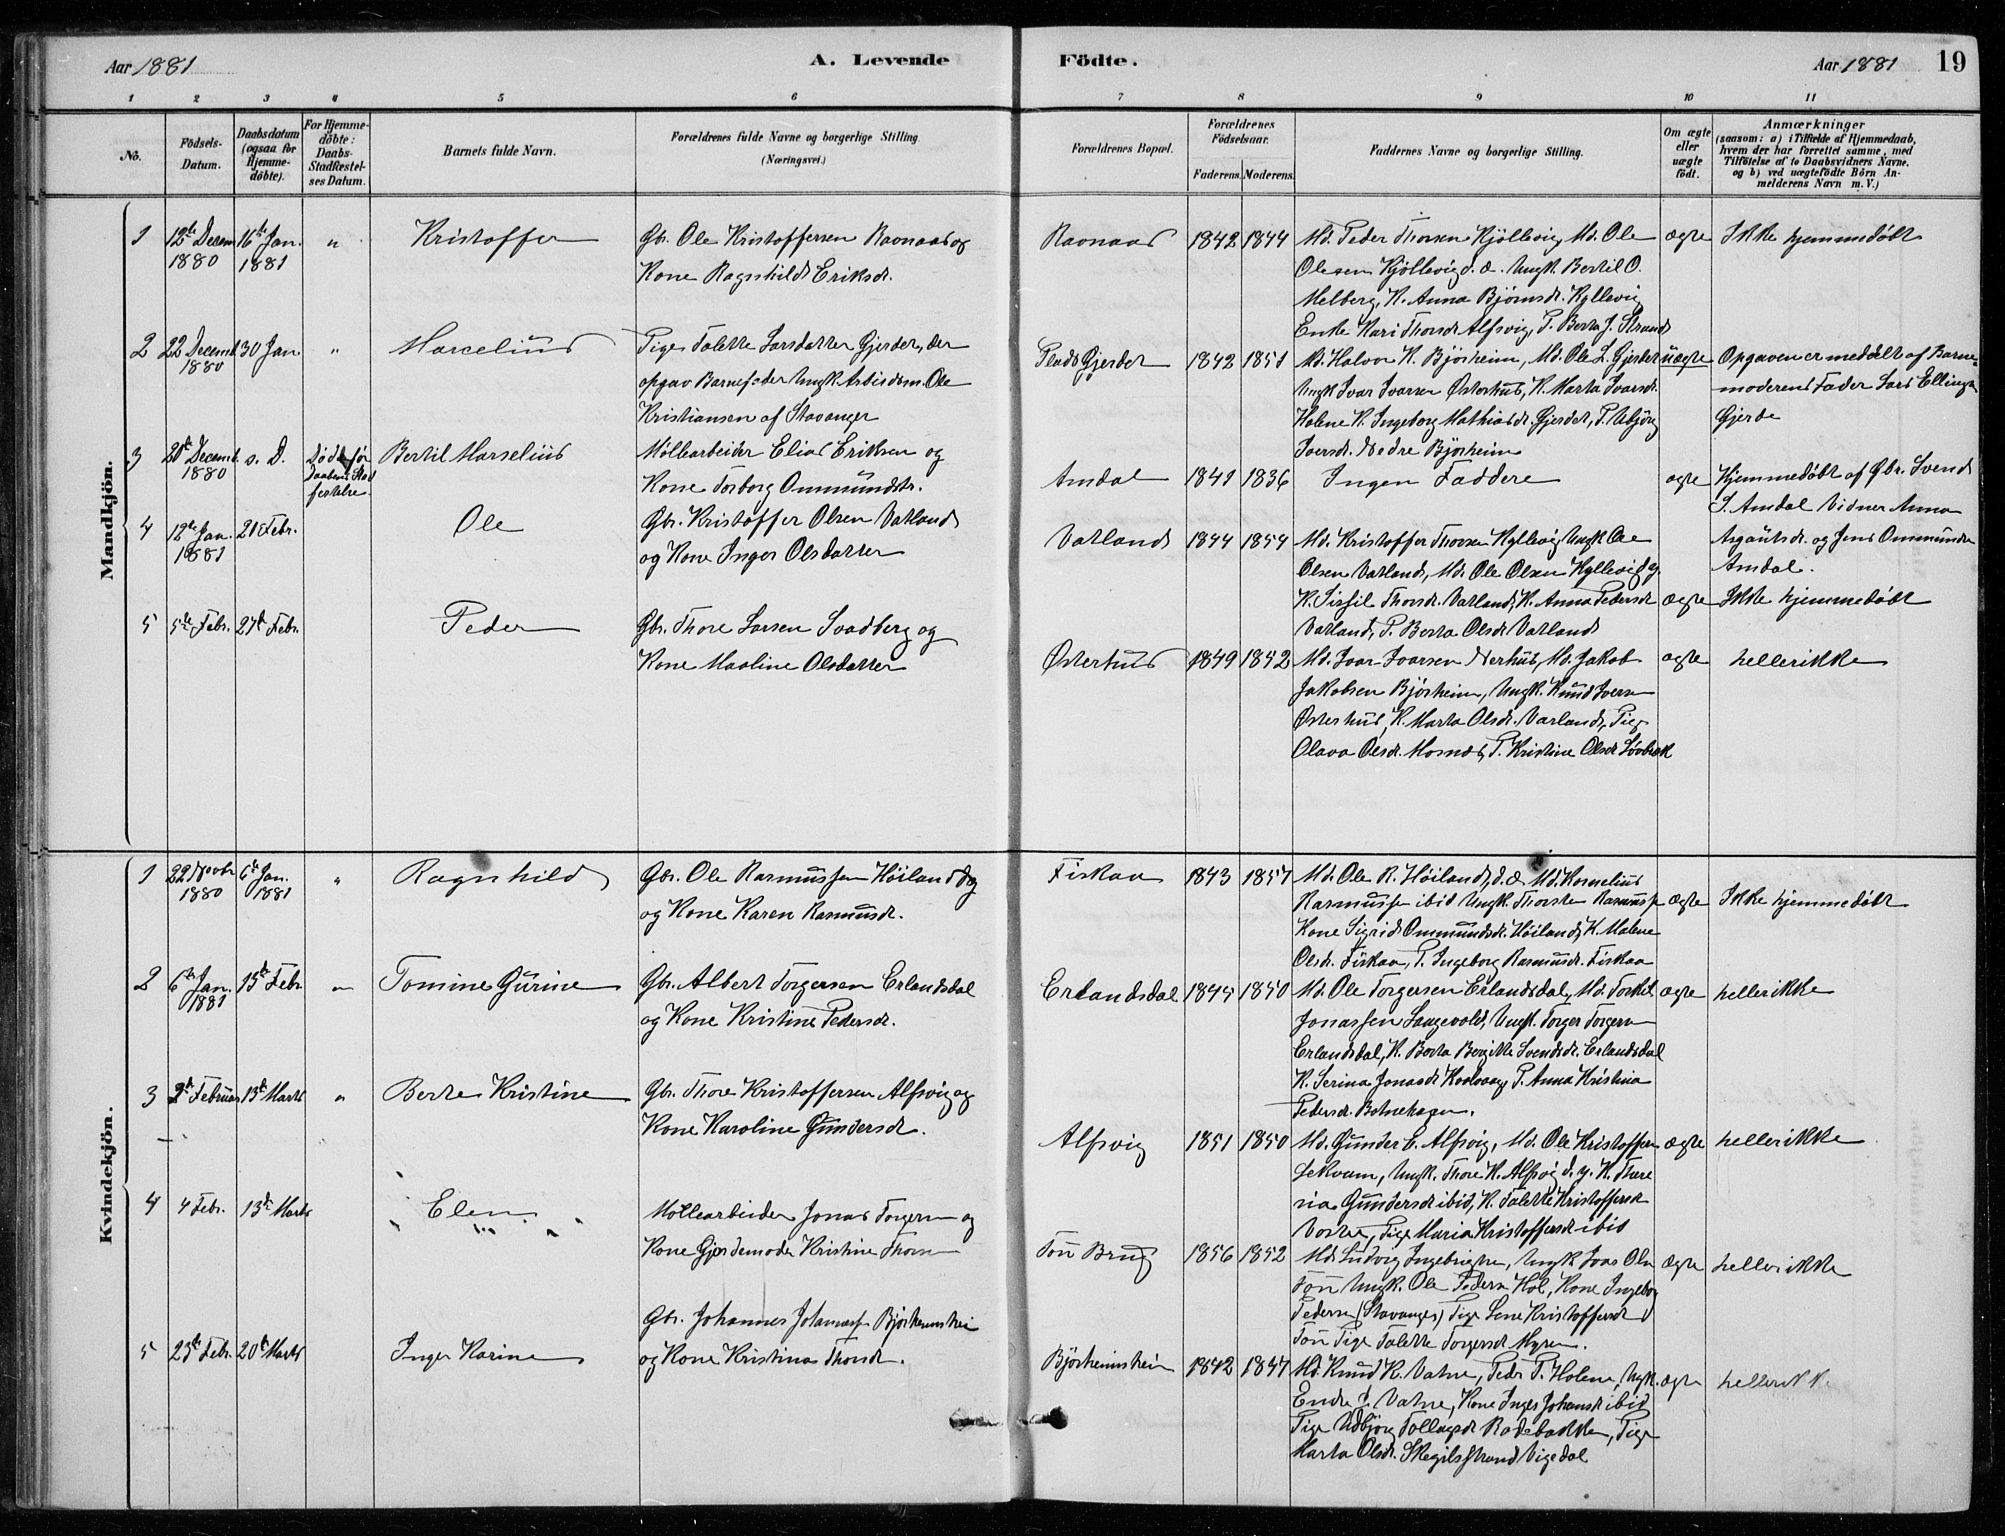 Aar 1881
A. Levende
Födte.
Aar 1881
19
1 2 3 4 5 6 7 8 9 10 11
No.
Födsels-
Datum.
Daabsdatum
(ogsaa for
Hjemme-
döbte).
For Hjemme-
döbte:
Daabs-
Stadfæstel-
ses Datum.
Barnets fulde Navn.
Forældrenes fulde Navne og borgerlige Stilling
(Næringsvei.)
Forældrenes Bopæl.
Forældrenes
Födselsaar.
Faderens. Moderens.
Faddernes Navne og borgerlige Stilling.
Om ægte
eller
uægte
födt.
Anmærkninger
(saasom: a) i Tilfælde af Hjemmedaab,
hvem der har forrettet samme, med
Tilföielse af to Daabsvidners Navne,
og b) ved uægtefödte Börn An-
melderens Navn m. V.)
Mandkjön.
1
12te Decem
1880
16te Jan.
1881
"
Kristoffer
Gbr. Ole Kristoffersen Ravnaas og
Kone Ragnhild Eriksdr.
Ravnaas
1842 1844
Md. Peder Thorsen Kjöllevig, Md. Ole
Olesen Kjöllevig d. æ. Ungk. Bertil O.
Melberg, K. Anna Björnsdr. Kyllevig
Enke Kari Thorsdr Alfsvig, P. Berta J. Strand
ægte
Ikke hjemmedöbt
2
22 Decemb.
1880
30 Jan
"
Marcelius
Pige Talette Larsdatter Gjerder, der
opgav Barnefader Ungk. Arbeidsm. Ole
Kristiansen af Stavanger
Plads Gjerdet
1842 1851
Md. Halvor K. Björheim, Md. Ole L. Gjerdet
Ungk Ivar Ivarsen Østerhus, K. Marta Ivarsdr.
Holene K. Ingeborg Mathiasdr Gjerdet, P. Ubjörg
Iversdr. Nedre Björheim
uægte
Opgaven er meddelt af Barne-
moderens Fader Lars Ellings
Gjerde
3
20de Decemb.
1880
s. D.
Död før
Daabens Stad
festelse
Bertil Marselius
Möllearbeider Elias Eriksen og
Kone Torborg Ommundsdr.
Amdal
1841 1836
Ingen Faddere
ægte
Hjemmedöbt af Gbr. Svend
S. Amdal Vidner Anna
Asgautsdr. og Jens Ommundsen
Amdal.
4
12te Jan.
1881
20 Febr.
Ole
Gbr. Kristoffer Olsen Vatland
og Kone Inger Olsdatter
Vatland
1844 1854
Md. Kristoffer Thorsen Kyllevig Ungk. Ole
Olsen Vatland, Md. Ole Olsen Kyllevig d. y.
K. Sissil Thorsdr. Vatland, K. Anna Pedersdr
Vatland, P. Berta Olsdr Vatland
ægte
Ikke hjemmedöbt
5
5te Febr.
27de Febr.
Peder
Gbr. Thore Larsen Svadberg og
Kone Maaline Olsdatter
Østerhus
1849 1852
Md. Ivar Ivarsen Nerhus, Md. Jakob
Jakobsen Björheim, Ungk. Knud Iversen
Østerhus, K. Marta Olsdr. Vatland, Pige
Olava Olsdr. Mosnes, P. Kristine Olsdr
ægte
hellerikke
Kvindekjön.
1
22 Novbr
1880
6te Jan.
1881
"
Ragnhild
Gbr. Ole Rasmussen Höiland og
og Kone Karen Rasmusdr.
Fiskaa
1843 1857
Md. Ole R. Höiland, d. æ. Md. Kornelius
Rasmussen ibid Ungk. Thorsten Rasmussen
Kone Sigrid Ommundsdr. Höiland, K. Malene
Olsdr. Fiskaa, P. Ingeborg Rasmusdr. Fiskaa
ægte
Ikke hjemmedöbt
2
6te Jan.
1881
15de Febr
"
Tomine Gurine
Gbr. Albert Torgersen Erlandsdal
og Kone Kristine Pedersdr.
Erlandsdal
1845 1850
Md. Ole Torgersen Erlandsdal, Md. Torkel
Jonassen Laugevold, Ungk. Torger Torgersen
Erlandsdal, K. Berta Bergitte Svendsdr. Erlandsdal
K. Serina Jonasdr P. Anna Kristina
Pedersdr. Botnehagen.
ægte
hellerikke
3
2de Februar
13de Marts
"
Berte Kristine
Gbr. Thore Kristoffersen Alfsvig og
Kone Karoline Gundersdr.
Alfsvig
1851 1850
Md. Gunder E. Alfsvig, Md. Ole Kristoffersen
Lekvam, Ungk. Thore K. Alfsvig d. y. K. There
sia Gundersdr ibid, K. Talette Kristoffersdr
Pige Maria Kristoffersdr ibid
ægte
hellerikke
4
4 Febr.
13de Marts
Elen
Möllearbeider Jonas Torgersen og
Kone Gjordemoder Kristine Thorsen
Tou Brug
1856 1852
Md. Ludvig Ingebrigtsen, Ungk Ivar Olsen
Tou Ungk. Ole Pedersen Hol, Kone Ingeborg
Pedersen (Stavanger) Pige Lene Kristoffersdr
Tou Pige Talette Torgersdr Myren.
ægte
hellerikke
5
23de Febr.
20de Marts
Inger Karine
Gbr. Johannes Johannesen Björheimshei
og Kone Kristina Thorsdr.
Björheimshein
1842 1847
Md. Knud K. Vatne, Peder T. Holene, Ungk.
Endre J. Vatne, Kone Inger Johansdr ibid
Pige Udbjörg Tollagsdr Rodebakken, Pige
Marta Olsdr. Skegilsstrand Vigedal
ægte
hellerikke